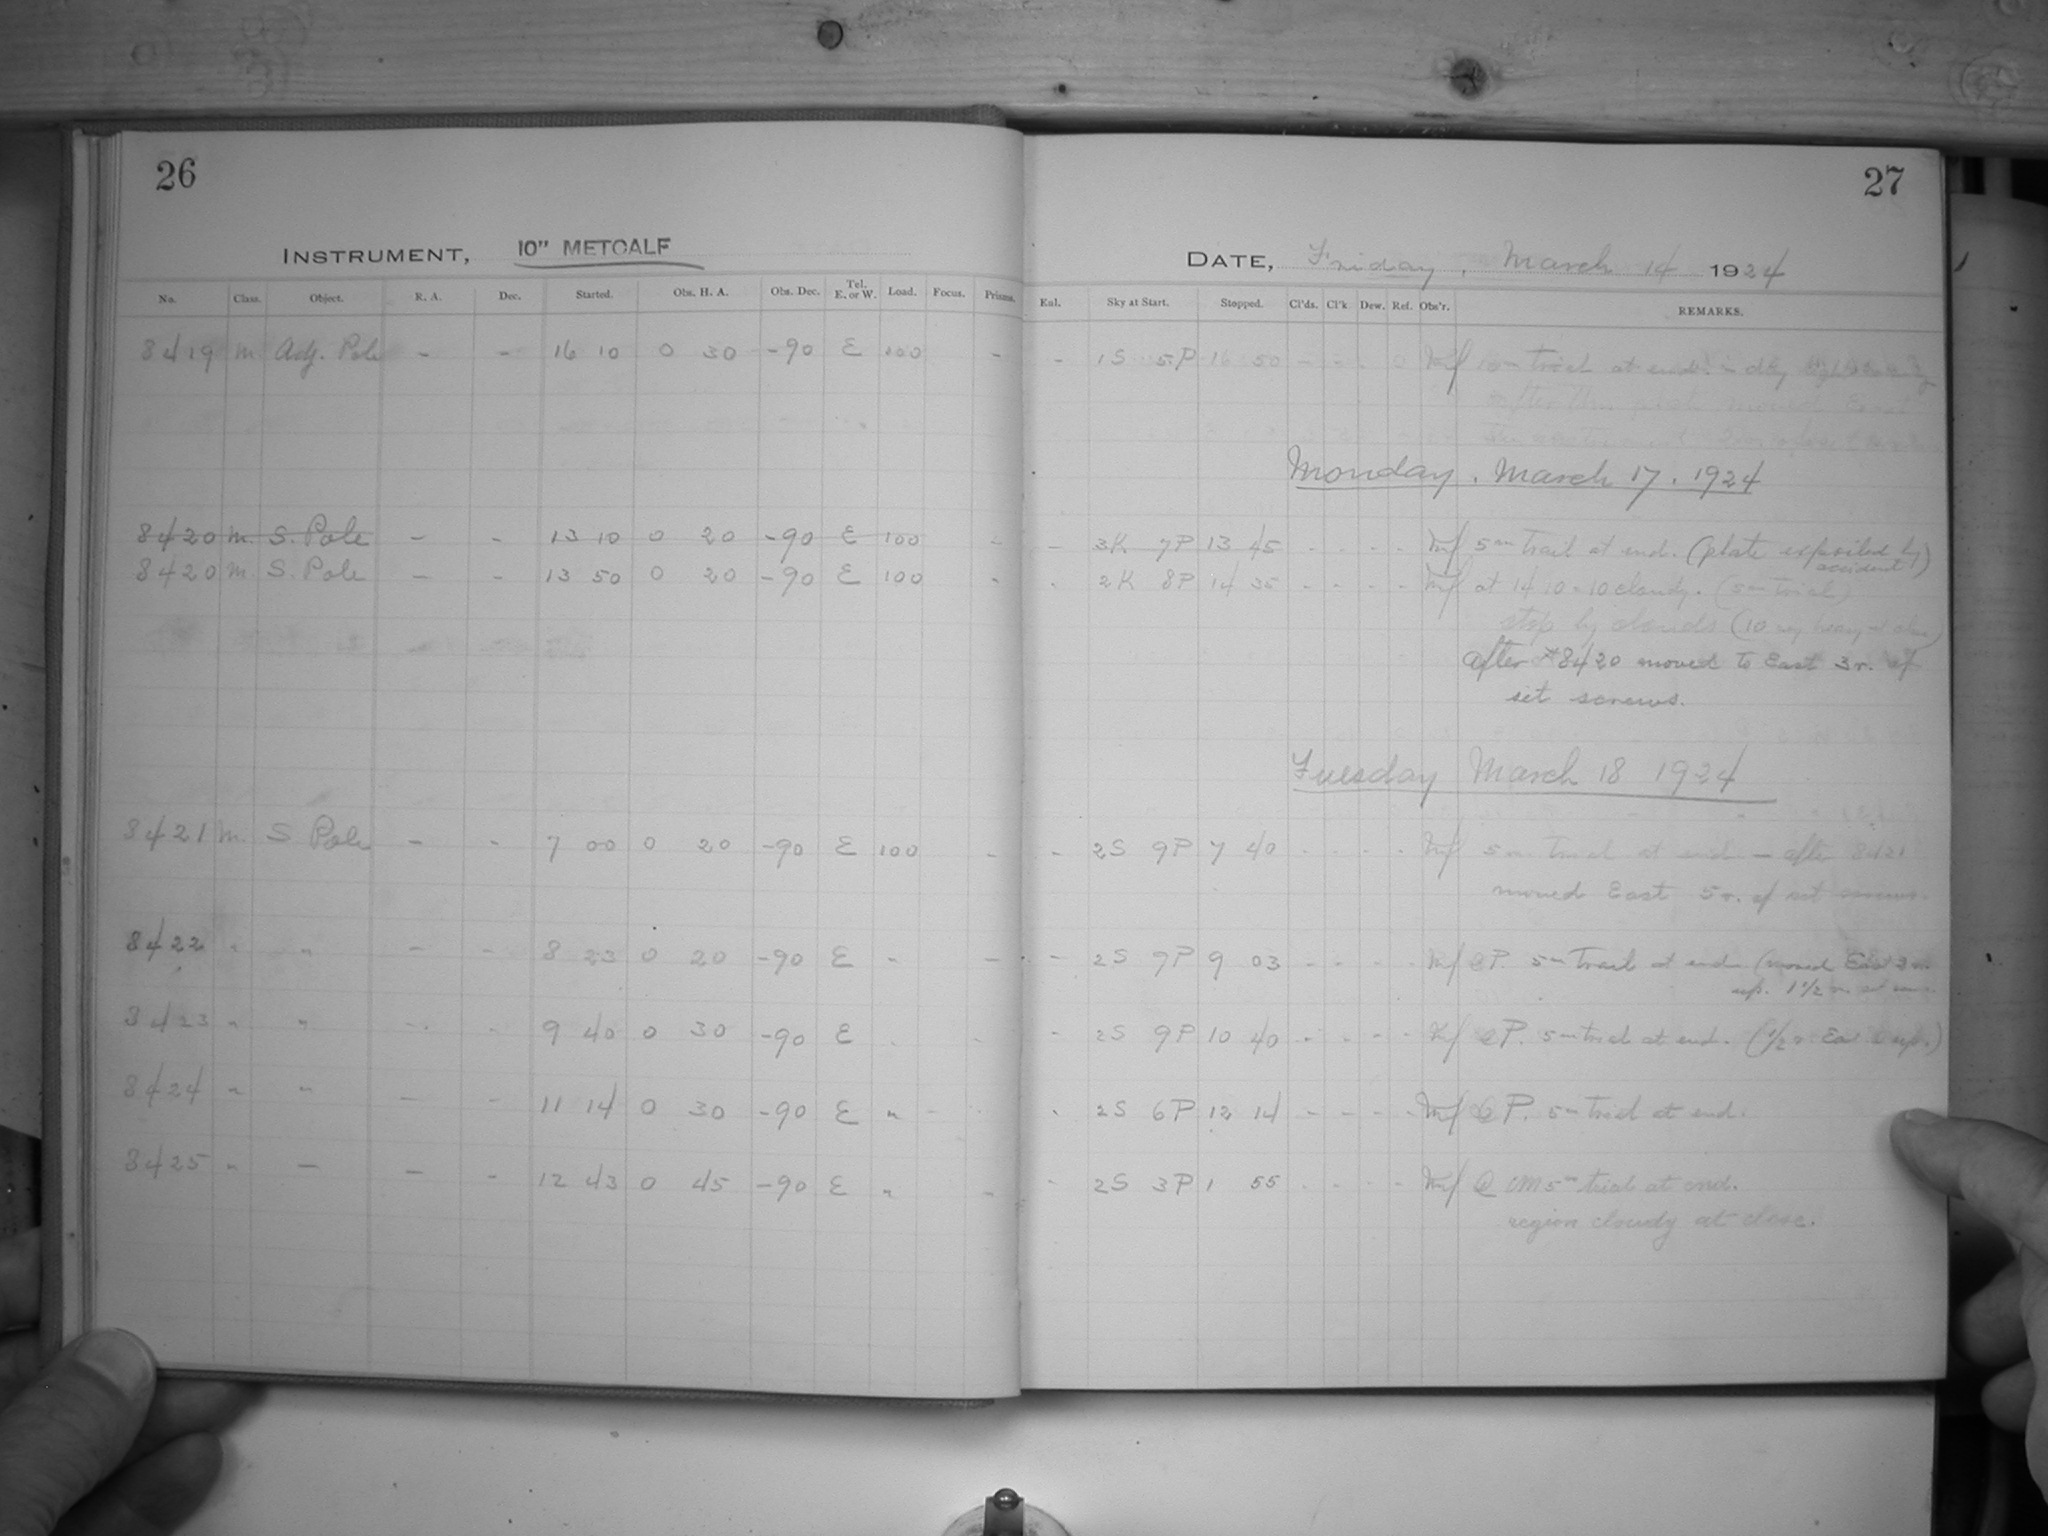 26
27
INSTRUMENT, 10" METCALF
DATE, Friday, March 14 1924
No. Class. Object. R. A. Dec. Started. Obs. H. A. Obs. Dec. Tel. E. or W. Load. Focus. Prisms. Eul. Sky at Start. Stopped. Cl'ds. Cl'k Dew. Ref. Obs'r. REMARKS.
8419 M. Adj. Pole - - 16 10 0 30 -90 E 100 - - 1S 5P 16 50 - - - 0 10m trail at end
after this moved East
Monday. March 17. 1924
8420 M. S. Pole - - 13 10 0 20 -90 E 100 - - 3K 7P 13 45 - - - - 5m trail at end. (plate by
accident)
8420 M S. Pole - - 13 50 0 20 -90 E 100 - - 2K 8P 14 35 - - - - at 14 10 = 10 cloudy. (5m trail)
stop by clouds (10
after #8420 moved to East 3r. of
set screws.
Tuesday March 18 1924
8421 M. S Pole - - 7 00 0 20 -90 E 100 - - 2S 9P 7 40 - - - - 5m trail at end - after 8421
moved East 5r. of set screws.
8422 " " - - 8 23 0 20 -90 E " - - 2S 9P 9 03 - - - - P. 5m Trail at end (moved East
1 1/2
8423 " " - - 9 40 0 30 -90 E - - 2S 9P 10 40 - - - - P. 5m trail at end. (1/2 r. East
8424 " " - - 11 14 0 30 -90 E " - - 2S 6P 12 14 - - - - P. 5m trail at end.
8425 " - - - 12 43 0 45 -90 E " - - 2S 3P 1 55 - - - - 5m trail at end.
region cloudy at close.